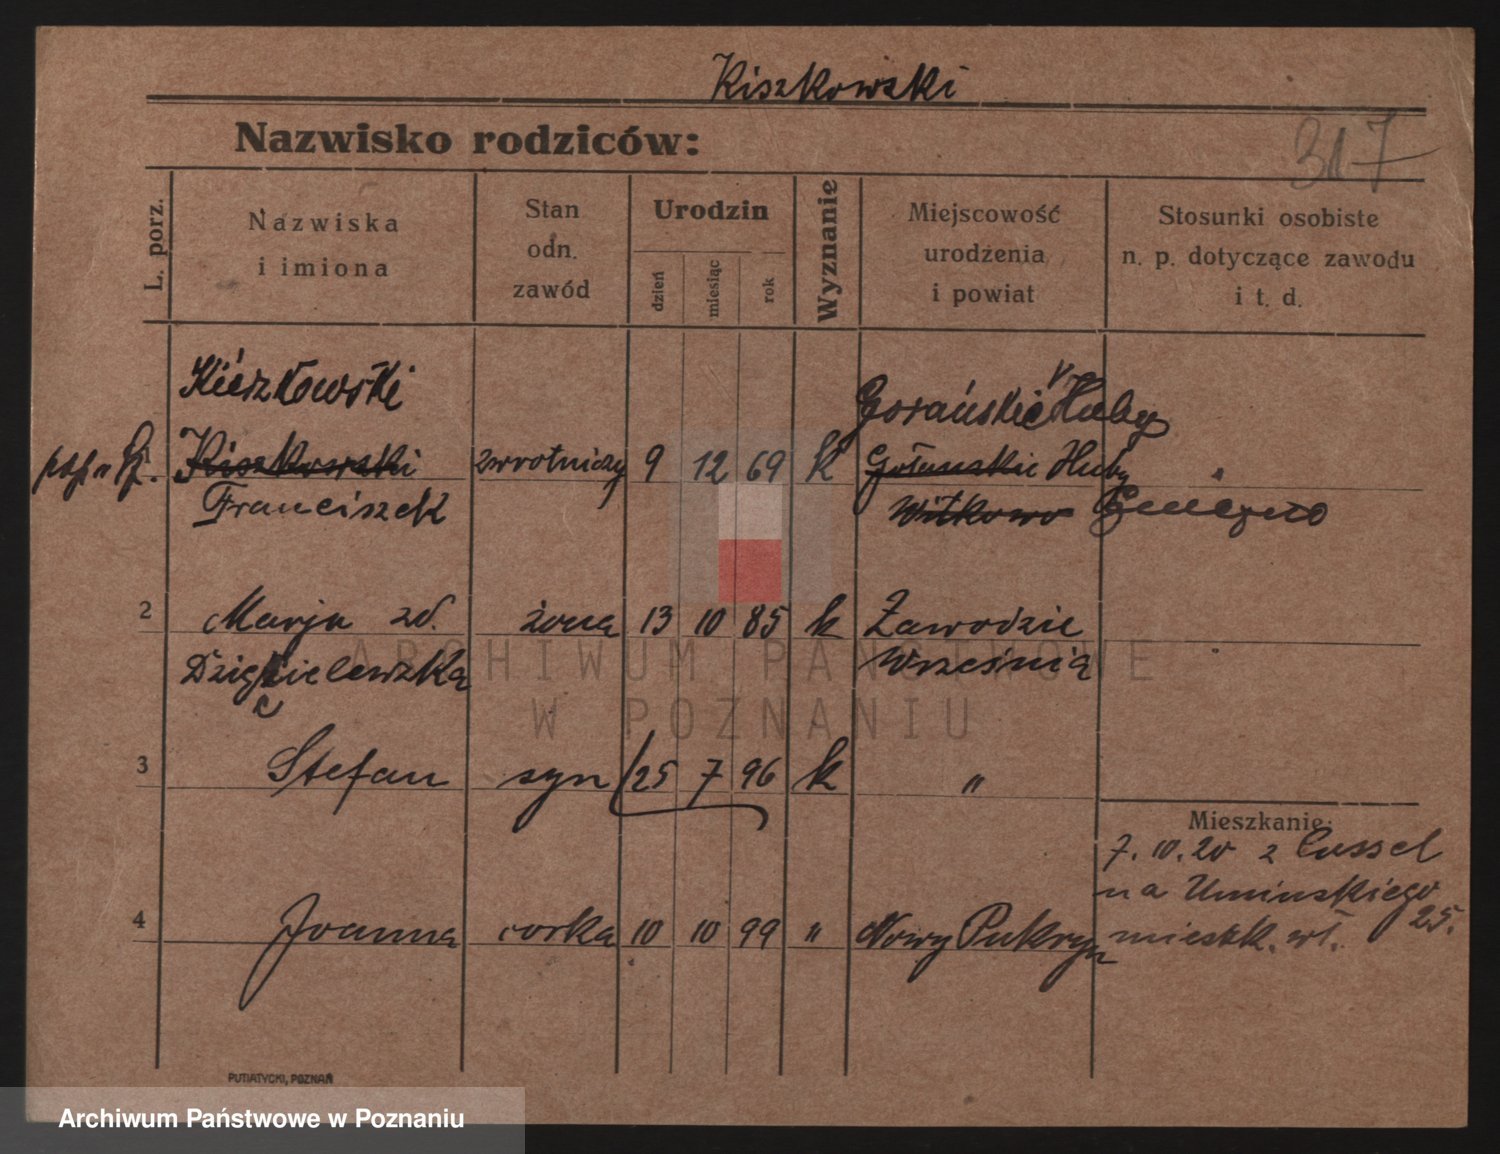 Kiszkowski
Nazwisko rodziców:
317
L. porz.
Nazwiska
i imiona
Stan
odn.
zawód
Urodzin
dzień
miesiąc
rok
Wyznanie
Miejscowość
urodzenia
i powiat
Stosunki osobiste
n. p. dotyczące zawodu
i t. d.
Kiszkowski
Gorańskie Huby
1 Kiszkowski zwrotniczy 9 12 69 k Huby
Franciszek Witkowo Gniezno
2 Marja zd. żona 13 10 85 k Zawodzie
Września
3 Stefan syn 25 7 96 k "
Mieszkanie:
7.10.20 z Cassel
na Umińskiego
25.
4 Joanna corka 10 10 99 " Nowy mieszk. wł.
PUTIATYCKI, POZNAŃ
ARCHIWUM PAŃSTWOWE
W POZNANIU
Archiwum Państwowe w Poznaniu